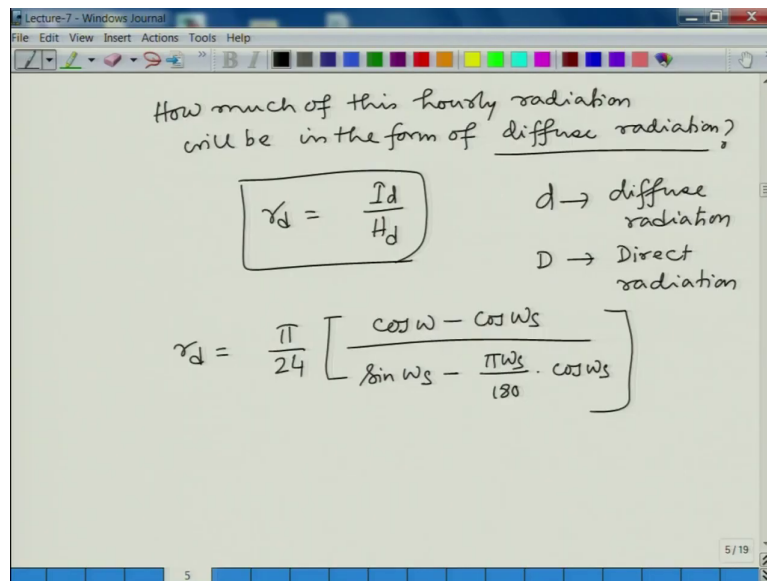 Lecture-7 - Windows Journal
File Edit View Insert Actions Tools Help
How much of this hourly radiation
will be in the form of diffuse radiation?
rd = Id / Hd
d → diffuse
radiation
D → Direct
radiation
rd = π/24 [ (cos ω - cos ωs) / (sin ωs - πωs/180 . cos ωs) ]
5 / 19
5